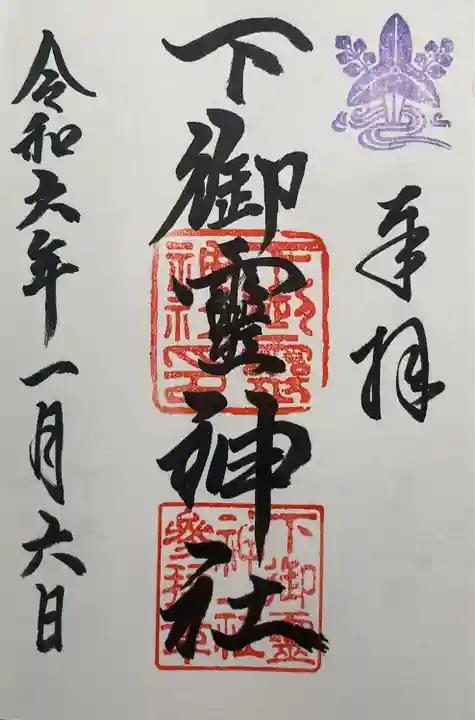 奉拝
下御靈神社
下御靈神社印
下御靈
神社
參拜章
令和六年一月六日